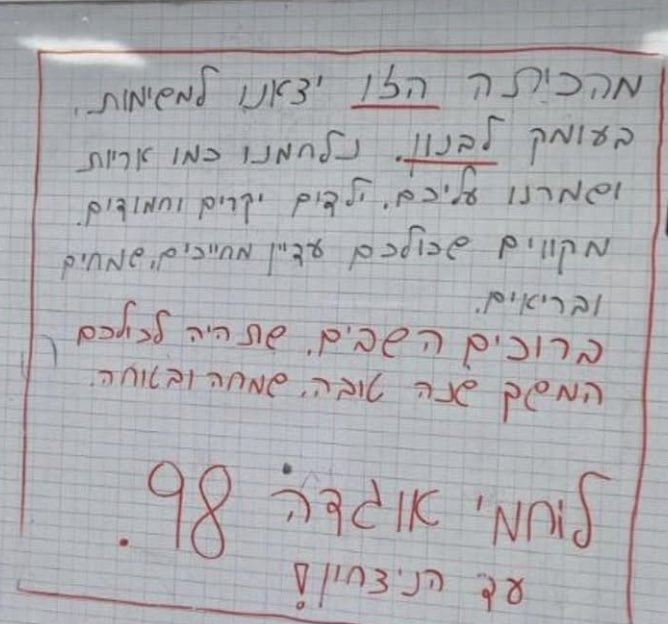 מהכיתה הזו יצאנו למשימות.
בעומק לבנון. נלחמנו כמו אריות
ושמרנו עליכם. ילדים יקרים וחמודים.
מקווים שכולכם עדיין מחייכים, שמחים
ובריאים.
ברוכים השבים. שתהיה לכולכם
המשך שנה טובה, שמחה ובטוחה.
לוחמי אוגדה 98.
עד הניצחון!